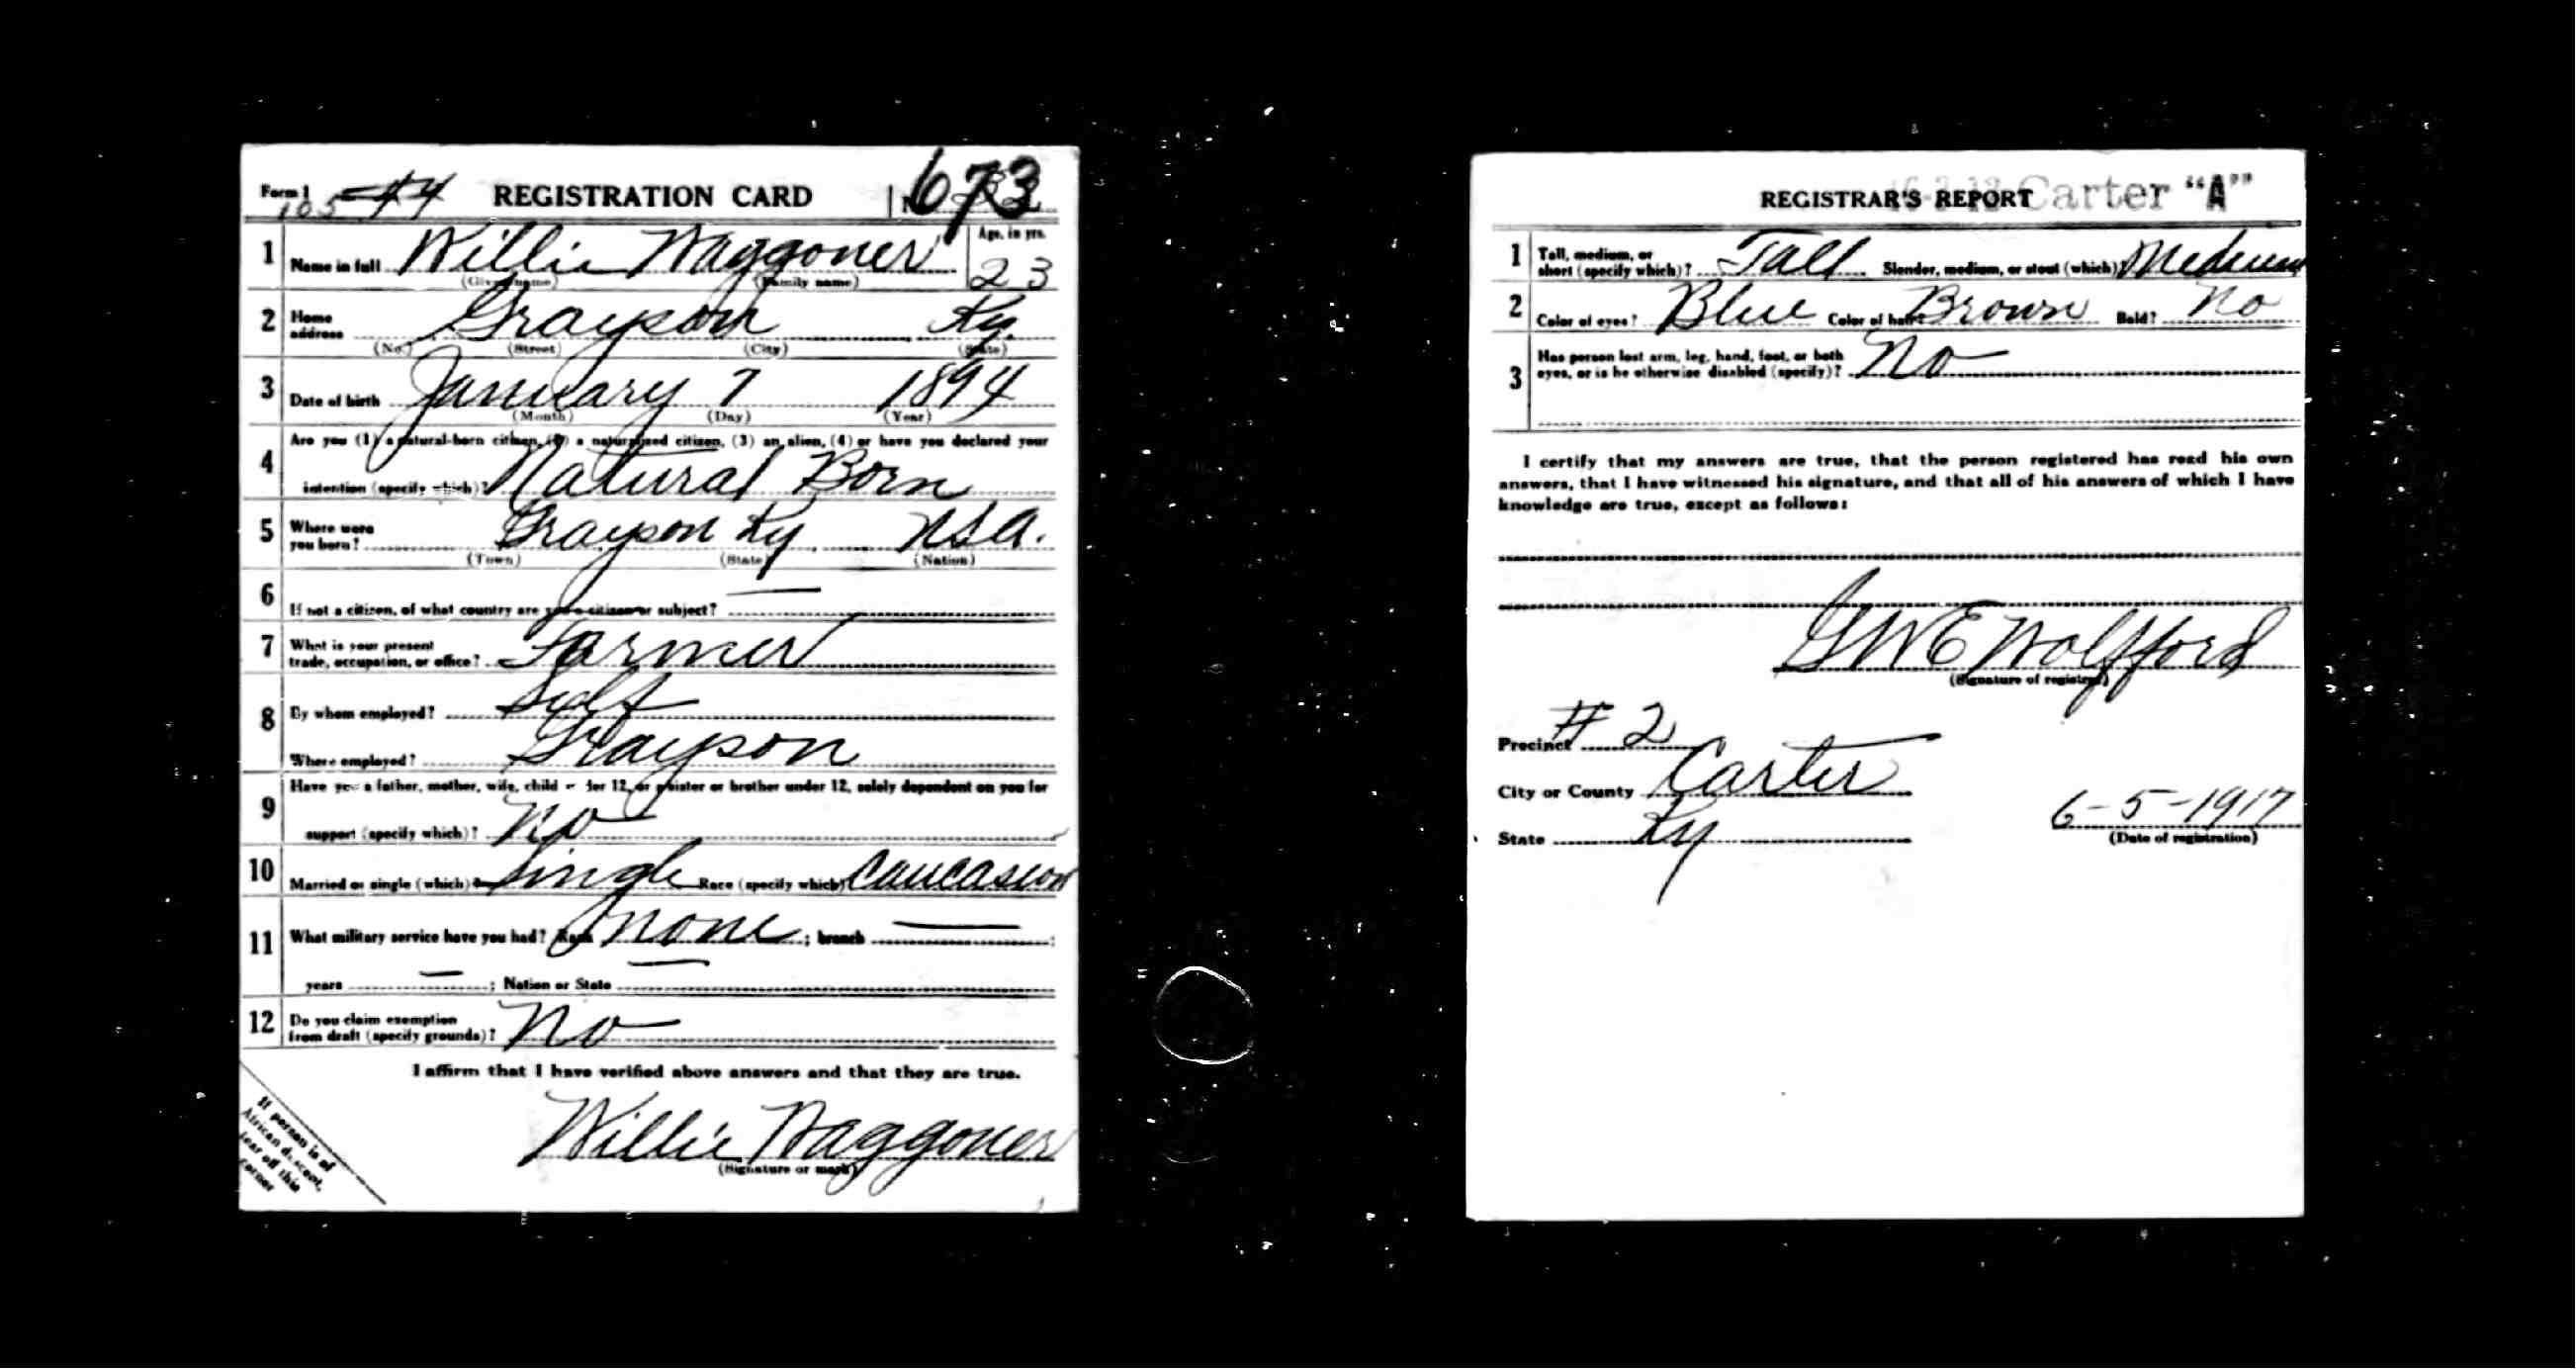 Form 1 REGISTRATION CARD 673
105
1 Name in full Willie Waggoner Age, in yrs. 23
(Given name) (Family name)
2 Home address Grayson Ky.
(No.) (Street) (City) (State)
3 Date of birth January 7 1894
(Month) (Day) (Year)
4 Are you (1) a natural-born citizen, (2) a naturalized citizen, (3) an alien, (4) or have you declared your
intention (specify which)? Natural Born
5 Where were you born? Grayson Ky USA.
(Town) (State) (Nation)
6 If not a citizen, of what country are you a citizen or subject? —
7 What is your present trade, occupation, or office? Farmer
8 By whom employed? Self
Where employed? Grayson
9 Have you a father, mother, wife, child under 12, or a sister or brother under 12, solely dependent on you for
support (specify which)? No
10 Married or single (which)? Single Race (specify which)? Caucasion
11 What military service have you had? Rank None ; branch — ;
years — ; Nation or State —
12 Do you claim exemption from draft (specify grounds)? No
I affirm that I have verified above answers and that they are true.
Willie Waggoner
(Signature or mark)
If person is of
African descent,
tear off this
corner
REGISTRAR'S REPORT Carter "A"
1 Tall, medium, or short (specify which)? Tall Slender, medium, or stout (which)? Medium
2 Color of eyes? Blue Color of hair? Brown Bald? No
3 Has person lost arm, leg, hand, foot, or both
eyes, or is he otherwise disabled (specify)? No
I certify that my answers are true, that the person registered has read his own
answers, that I have witnessed his signature, and that all of his answers of which I have
knowledge are true, except as follows:
GWE Wolfford
(Signature of registrar)
Precinct # 2
City or County Carter
State Ky
6-5-1917
(Date of registration)